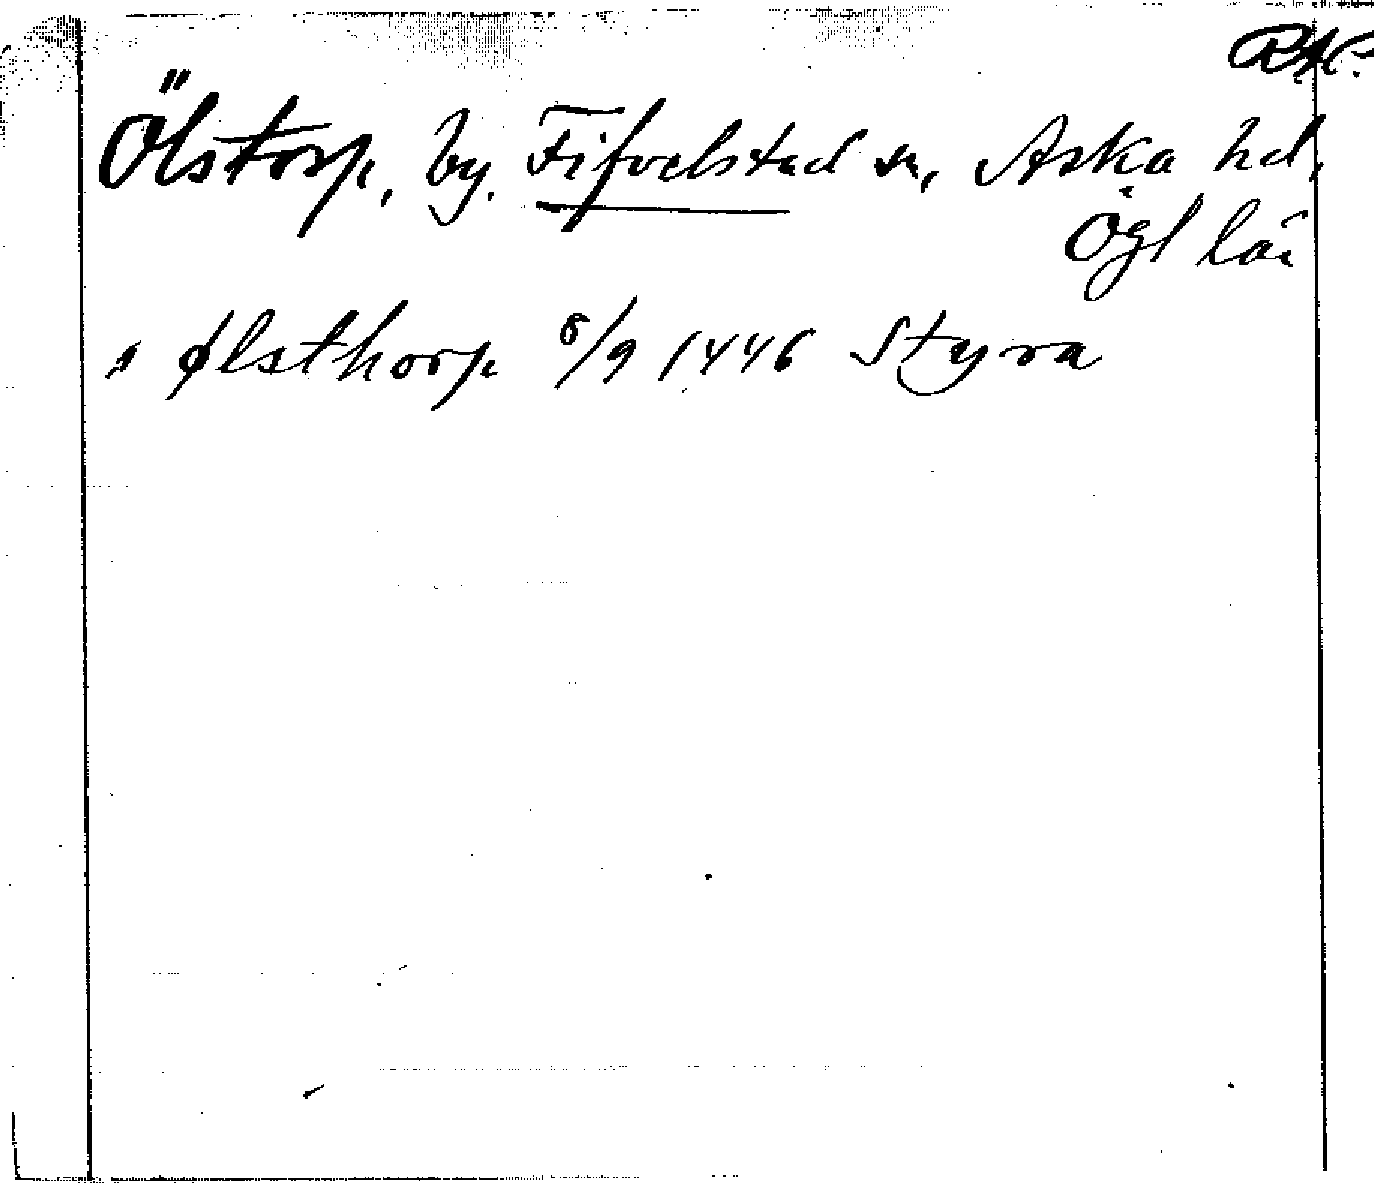 RAP.
Ölstorp, by. Fifvelstad sn, Aska hd,
Ögl län
s ølsthorp 8/9 1446 Styra